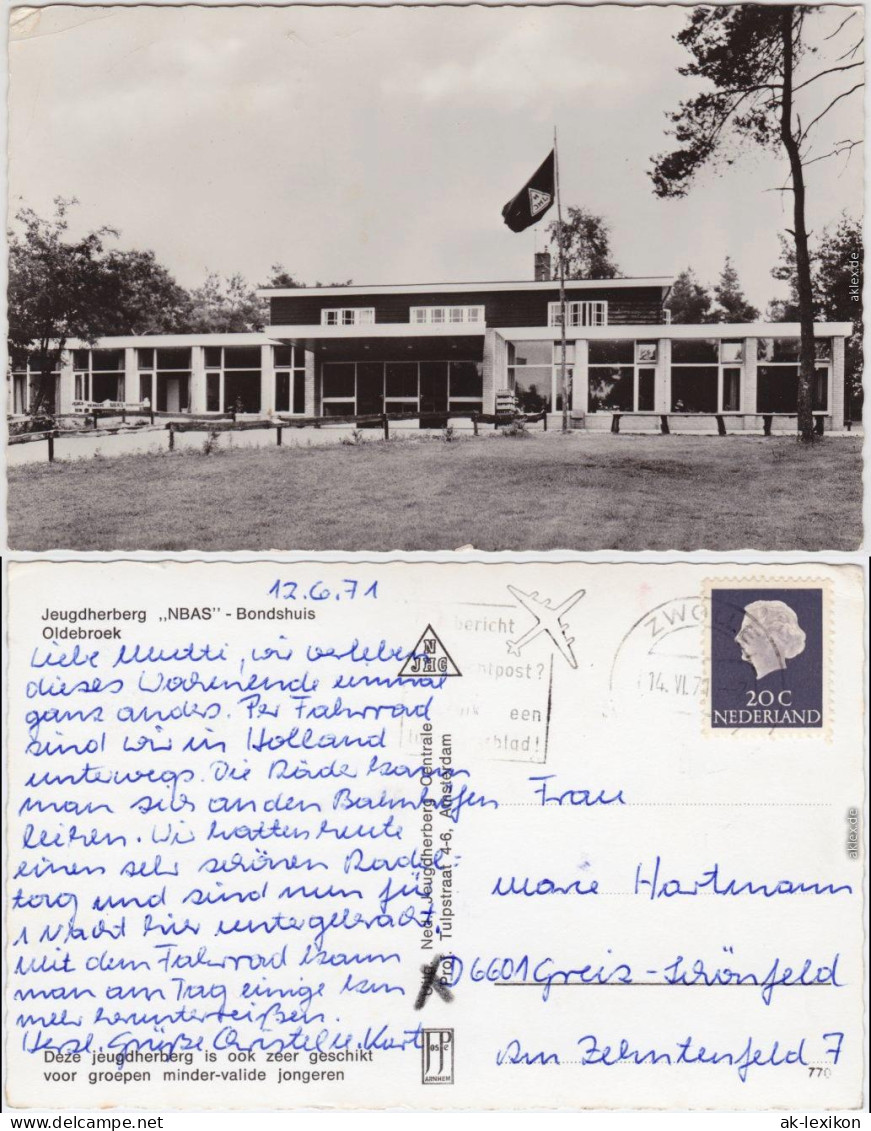 aklex.de
12.6.71
Jeugdherberg „NBAS" - Bondshuis
Oldebroek
N
JHC
Liebe Mutti, wir verleben
dieses Wochenende einmal
ganz anders. Per Fahrrad
sind wir in Holland
unterwegs. Die Räder kann
man sich an den Bahnhöfen
leihen. Wir hatten heute
einen sehr schönen Radel-
tag und sind nun für
1 Nacht hier untergebracht.
Mit dem Fahrrad kann
man am Tag einige km
mehr herunterreißen.
Herzl. Grüße Christel u. Kurt
Deze jeugdherberg is ook zeer geschikt
voor groepen minder-valide jongeren
Ned. Jeugdherberg Centrale
Prof. Tulpstraat 4-6, Amsterdam
JOSPE
ARNHEM
bericht
post?
een
blad!
ZWOLLE
14. VI. 7
20 C
NEDERLAND
Frau
Marie Hartmann
D6601 Greiz-Schönfeld
Am Zehntenfeld 7
770
aklex.de
ak-lexikon